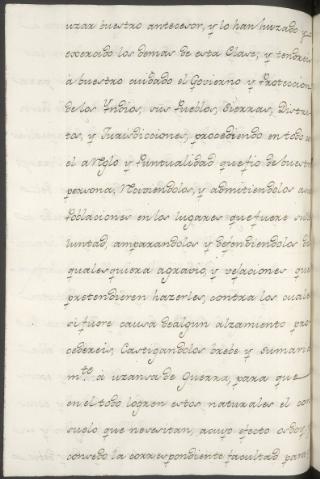 uzar buestro antecesor, y lo han huzado y
exercido los demas de esta Clase; y tendreis
á buestro cuidado el Govierno y Proteccion
de los Yndios, sus Pueblos, Sierras, Distri
tos, y Jurisdicciones, procediendo en todo a
el arreglo y Puntualidad que fio de buestr
persona, Moviendolos, y admitiendolos a
Poblaciones en los lugares que fuere su
luntad, amparandolos y defendiendolos de
qualesquiera agravio, y vejaciones que
pretendieren hazerles, contra los cuale
si fuere causa de algun alzamiento pro
cedereis, Castigandolos breve y sumaria
mte. á uzansa de Guerra, para que
en el todo logren estos naturales el con
suelo que nesesitan, acuyo efecto os doy,
consedo la correspondiente facultad para